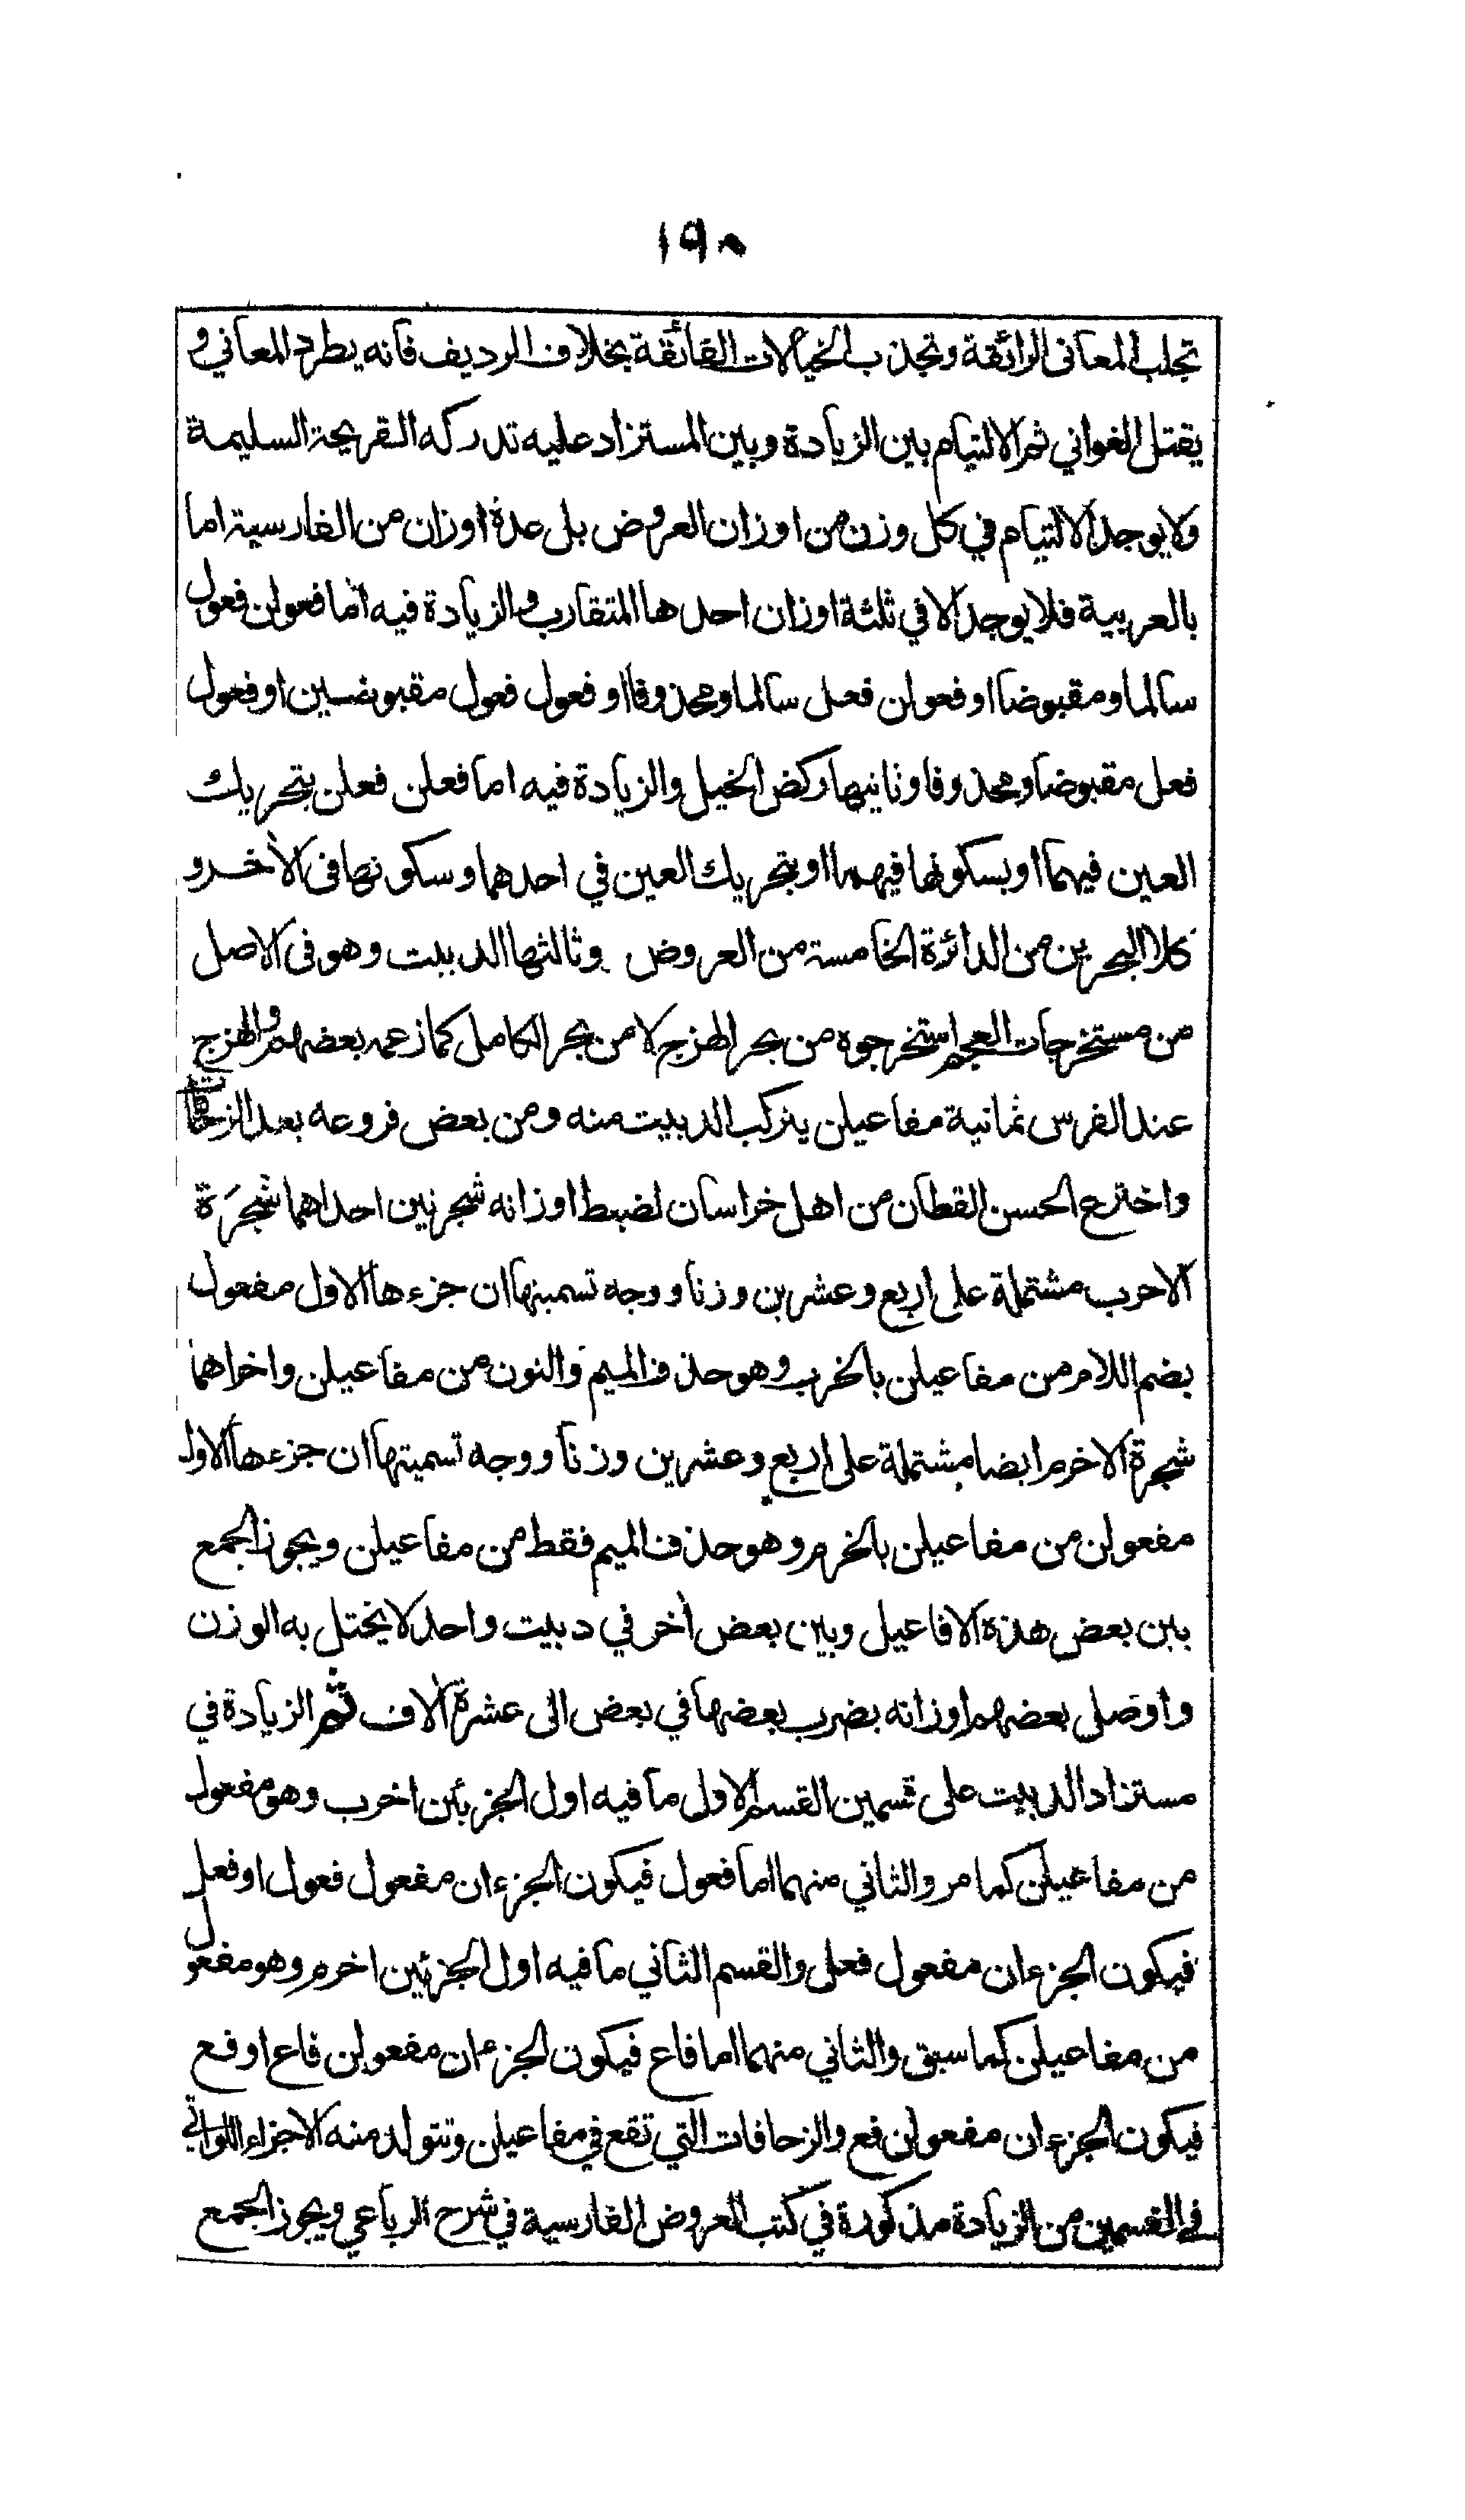 ١٩٠
تجلب المعانى الرائقة وتجذب الخيالات الفائقة بخلاف الرديف فانه يطرد المعاني و
يقتل الغواني ثم الالتيام بين الزيادة وبين المستزاد عليه تدركه القريحة السليمة
ولا يوجد الالتيام في كل وزن من اوزان العروض بل عدة اوزان من الفارسية اما
بالعربية فلا يوجد الا في ثلثة اوزان احدها المتقارب والزيادة فيه اما فعولن فعول
سالما ومقبوضا او فعولن فعل سالما ومحذوفا او فعول فعول مقبوضين او فعول
فعل مقبوضا ومحذوفا وثانيها ركض الخيل والزيادة فيه اما فعلن فعلن بتحريك
العين فيهما او بسكونها فيهما او بتحريك العين في احدهما وسكونها فى الأخر و
كلا البحرين من الدائرة الخامسة من العروض وثالثها الدبيت وهو فى الاصل
من مستخرجات العجم استخرجوه من بحر الهزج لا من بحر الكامل كما زعمه بعضهم والهزج
عند الفرس ثمانية مفاعيلن يتركب الدبيت منه ومن بعض فروعه بعد الزحافات
واخترع الحسن القطان من اهل خراسان لضبط اوزانه شجرتين احداهما شجرة
الاحرب مشتملة على اربع وعشرين وزنا ووجه تسميتها ان جزءها الاول مفعول
بضم اللام من مفاعيلن بالخرب وهو حذف الميم والنون من مفاعيلن واخراهما
شجرة الاخرم ايضا مشتملة على اربع وعشرين وزنا ووجه تسميتها ان جزءها الاول
مفعولن من مفاعيلن بالخرم وهو حذف الميم فقط من مفاعيلن ويجوز الجمع
بين بعض هذه الافاعيل وبين بعض أخر في دبيت واحد لا يختل به الوزن
واوصل بعضهم اوزانه بضرب بعضها في بعض الى عشرة ألاف ثم الزيادة في
مستزاد الدبيت على قسمين القسم الاول ما فيه اول الجزئين اخرب وهو مفعول
من مفاعيلن كما مر والثاني منهما اما فعول فيكون الجزءان مفعول فعول او فعل
فيكون الجزءان مفعول فعل والقسم الثاني ما فيه اول الجزئين اخرم وهو مفعول
من مفاعيلن كما سبق والثاني منهما اما فاع فيكون الجزءان مفعولن فاع او فع
فيكون الجزءان مفعولن فع والزحافات التي تقع في مفاعيلن وتتولد منه الاجزاء اللواتي
في القسمين من الزيادة مذكورة في كتب العروض الفارسية في شرح الرباعي ويجوز الجمع